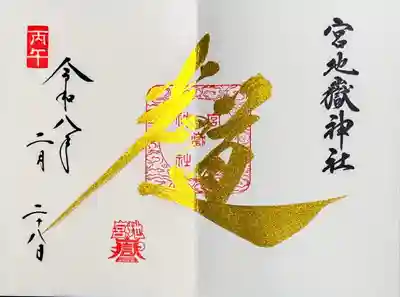 宮地嶽神社
道
丙午
令和八年
二月
二十八日
宮地嶽